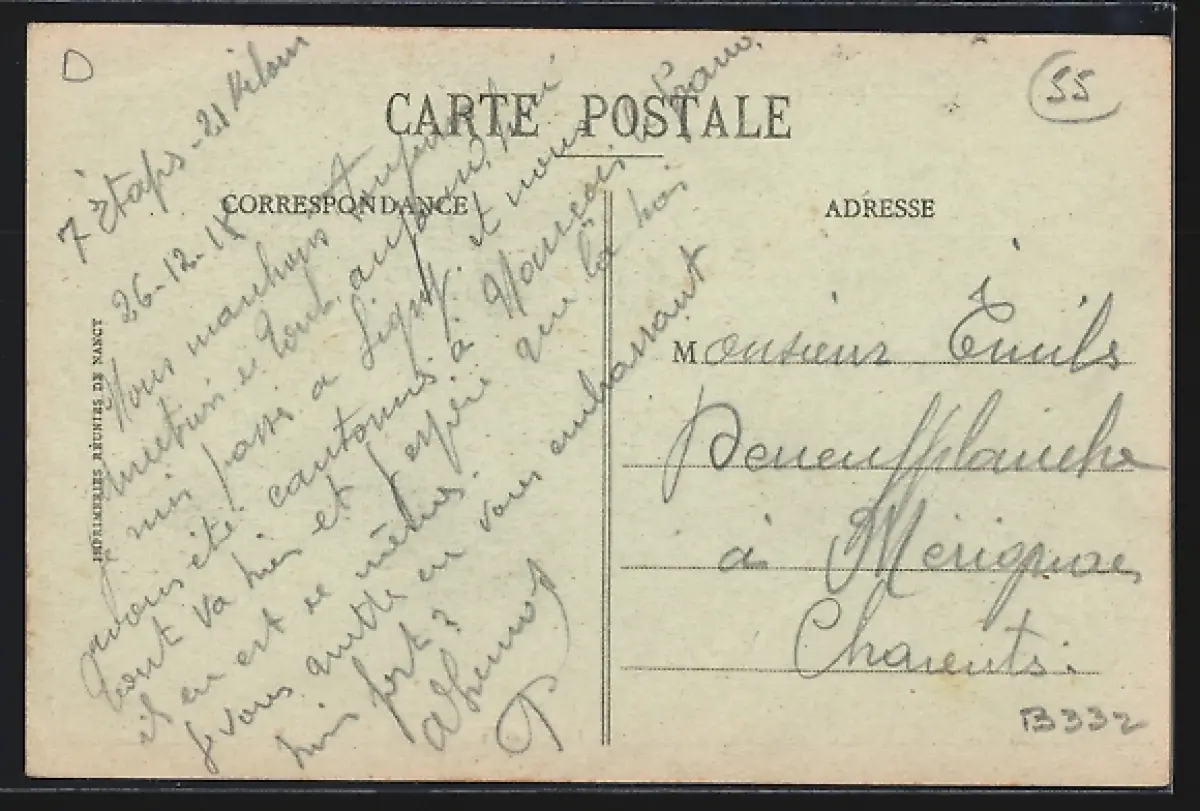 D
55
CARTE POSTALE
CORRESPONDANCE
ADRESSE
IMPRIMERIES RÉUNIES DE NANCY
7 Etaps - 21 Kilom
26-12-18
Nous marchons toujours
et tout aujourd'hui
je suis passé a Ligny et nous
avons été cantonnis a
tout va bien et j'espère que la
il en est de mêmes.
Je vous quitte en vous embrassant
bien fort
Monsieur Emile
Deneufplanche
à Mérignac
Charente.
B332